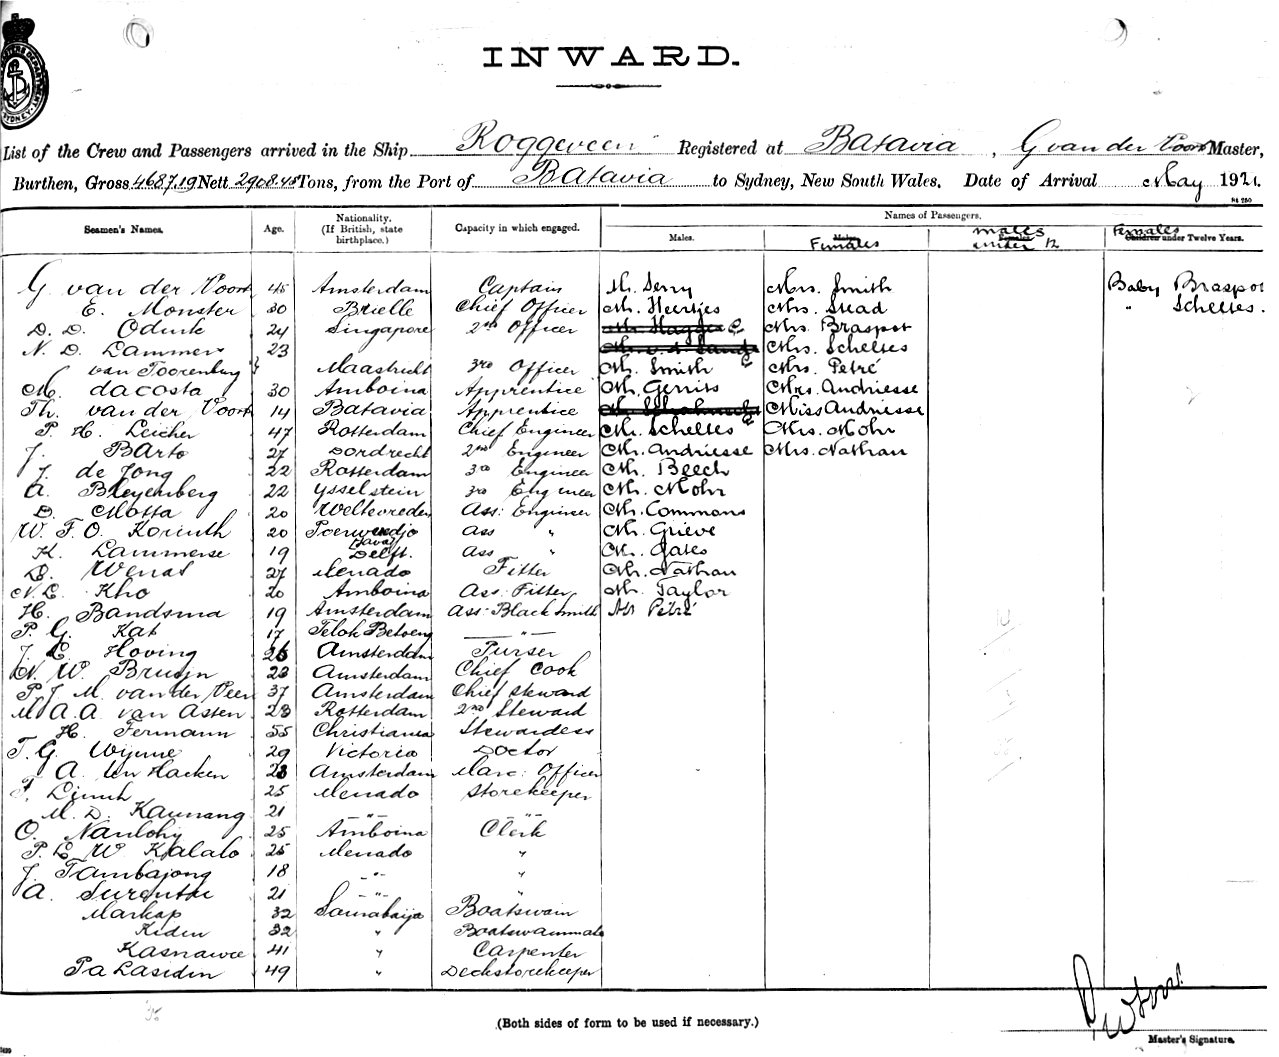 INWARD.
List of the Crew and Passengers arrived in the Ship Roggeveen Registered at Batavia, G van der Voort Master,
Burthen, Gross 4687.19 Nett 2908.45 Tons, from the Port of Batavia to Sydney, New South Wales. Date of Arrival May 1921.
Names of Passengers.
Seamen's Names. Age. Nationality. (If British, state birthplace.) Capacity in which engaged. Males. Females males under 12 Females under Twelve Years.
G. van der Voort 45 Amsterdam Captain M. Derry Mrs. Smith Baby Braspot
E. Monster 30 Brielle Chief Officer Mr. Heertjes Mrs. Stead " Scheltes.
D. D. Odink 24 Singapore 2nd Officer Mrs. Braspot
N. D. Lammers 23 Mrs. Scheltes
van Toorenburg Maastricht 3rd Officer Mr. Smith Mrs. Petré
M. dacosta 30 Amboina Apprentice Mr. Gerrits Mrs. Andriesse
Th. van der Voort 14 Batavia Apprentice Miss Andriesse
P. H. Leicher 47 Rotterdam Chief Engineer Mr. Scheltes Mrs. Mohr
J. Barto 27 Dordrecht 2nd Engineer Mr. Andriesse Mrs. Nathan
J. de Jong 22 Rotterdam 3rd Engineer Mr. Beech
A. Bleyenberg 22 Ysselstein 3rd Engineer Mr. Mohr
D. Motta 20 Weltevreden Ass: Engineer Mr. Commons
W. F. O. Korinth 20 Poerworedjo Ass " Mr. Grieve
K. Lammerse 19 Java Delft. Ass " Mr. Gates
D. Wenas 27 Menado Fitter Mr. Nathan
N. L. Kho 20 Amboina Ass: Fitter Mr. Taylor
H. Bandsma 19 Amsterdam Ass: Black Smith Mr Petré
P. G. Kat 17 Telok Betoeng "
J. C. Hoving 26 Amsterdam Purser
N. W. Bruyn 23 Amsterdam Chief Cook
P. J. M. van der Veer 37 Amsterdam Chief Steward
M. A. A. van Asten 23 Rotterdam 2nd Steward
H. Fermann 55 Christiania Stewardess
T. G. Wynne 29 Victoria Doctor
A. ten Haeken 23 Amsterdam Marc: Officer
25 Menado Storekeeper
M. D. Kaunang 21 " "
O. Nanlohy 25 Amboina Clerk
P. L. W. Kalalo 25 Menado "
J. Tambajong 18 " "
A. Surentu 21 " "
Markap 32 Sourabaija Boatswain
Kidin 32 " Boatswainmate
Kasnawee 41 " Carpenter
Pa Lasidin 49 " Deckstorekeeper
(Both sides of form to be used if necessary.)
Master's Signature.